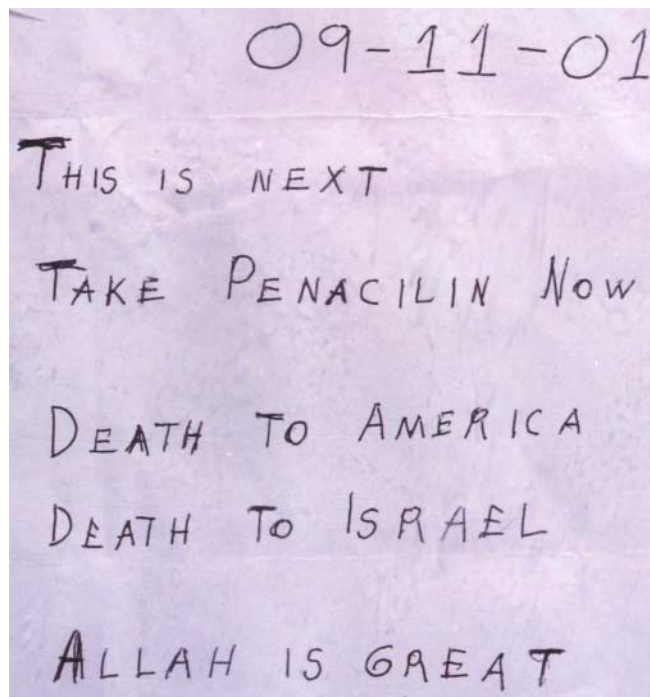 09-11-01
THIS IS NEXT
TAKE PENACILIN NOW
DEATH TO AMERICA
DEATH TO ISRAEL
ALLAH IS GREAT